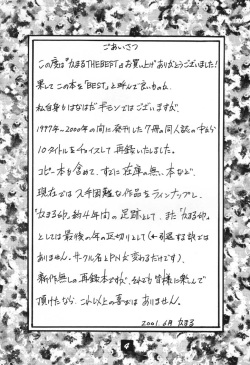 ごあいさつ
この度は『なまるTHE BEST』をお買上げありがとうございました!
果してこの本を「BEST」と呼んで良いものか、
私自身もはなはだギモンではございますが、
1997年〜2000年の間に発刊した7冊の同人誌の中から
10タイトルをチョイスして再録いたしました。
コピー本も含めて、すでに在庫の無い本など、
現在では入手困難な作品をラインナップし、
約4年間の足跡として、また
としては最後の年の区切りとして(←引退する訳では
ありません、サークル名とPNを変わるだけです)、
新作無しの再録本ですが、それでも皆様に楽しんで
頂けたなら、これ以上の喜びはありません。
2001. 6月
4